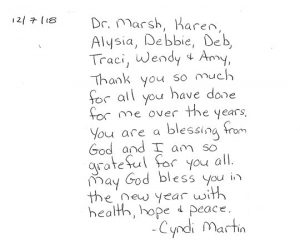 12/7/18
Dr. Marsh, Karen,
Alysia, Debbie, Deb,
Traci, Wendy & Amy,
Thank you so much
for all you have done
for me over the years.
You are a blessing from
God and I am so
grateful for you all.
May God bless you in
the new year with
health, hope & peace.
-Cyndi Martin